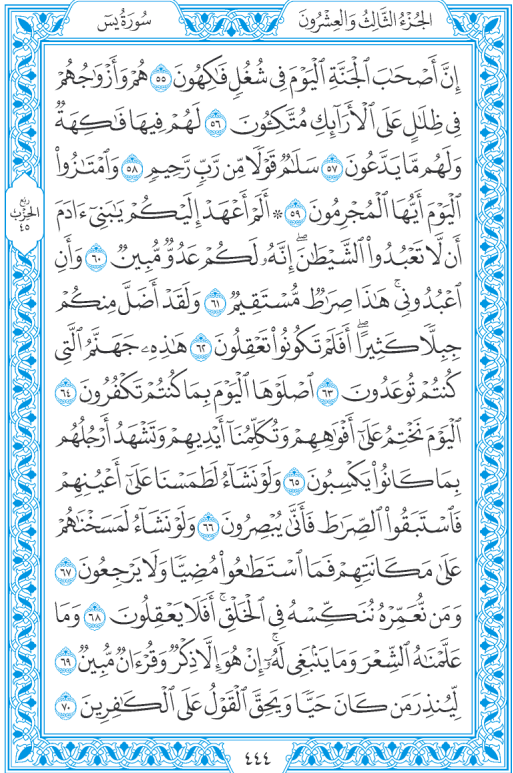 الجُزْءُ الثَّالِثُ وَالعِشْرُونَ سُورَةُ يسٓ
إِنَّ أَصْحَٰبَ ٱلْجَنَّةِ ٱلْيَوْمَ فِى شُغُلٍ فَٰكِهُونَ ٥٥ هُمْ وَأَزْوَٰجُهُمْ
فِى ظِلَٰلٍ عَلَى ٱلْأَرَآئِكِ مُتَّكِـُٔونَ ٥٦ لَهُمْ فِيهَا فَٰكِهَةٌ
وَلَهُم مَّا يَدَّعُونَ ٥٧ سَلَٰمٌ قَوْلًا مِّن رَّبٍّ رَّحِيمٍ ٥٨ وَٱمْتَٰزُوا۟
ٱلْيَوْمَ أَيُّهَا ٱلْمُجْرِمُونَ ٥٩ ۞ أَلَمْ أَعْهَدْ إِلَيْكُمْ يَٰبَنِىٓ ءَادَمَ
رُبع الحِزْب ٤٥
أَن لَّا تَعْبُدُوا۟ ٱلشَّيْطَٰنَ ۖ إِنَّهُۥ لَكُمْ عَدُوٌّ مُّبِينٌ ٦٠ وَأَنِ
ٱعْبُدُونِى ۚ هَٰذَا صِرَٰطٌ مُّسْتَقِيمٌ ٦١ وَلَقَدْ أَضَلَّ مِنكُمْ
جِبِلًّا كَثِيرًا ۖ أَفَلَمْ تَكُونُوا۟ تَعْقِلُونَ ٦٢ هَٰذِهِۦ جَهَنَّمُ ٱلَّتِى
كُنتُمْ تُوعَدُونَ ٦٣ ٱصْلَوْهَا ٱلْيَوْمَ بِمَا كُنتُمْ تَكْفُرُونَ ٦٤
ٱلْيَوْمَ نَخْتِمُ عَلَىٰٓ أَفْوَٰهِهِمْ وَتُكَلِّمُنَآ أَيْدِيهِمْ وَتَشْهَدُ أَرْجُلُهُم
بِمَا كَانُوا۟ يَكْسِبُونَ ٦٥ وَلَوْ نَشَآءُ لَطَمَسْنَا عَلَىٰٓ أَعْيُنِهِمْ
فَٱسْتَبَقُوا۟ ٱلصِّرَٰطَ فَأَنَّىٰ يُبْصِرُونَ ٦٦ وَلَوْ نَشَآءُ لَمَسَخْنَٰهُمْ
عَلَىٰ مَكَانَتِهِمْ فَمَا ٱسْتَطَٰعُوا۟ مُضِيًّا وَلَا يَرْجِعُونَ ٦٧
وَمَن نُّعَمِّرْهُ نُنَكِّسْهُ فِى ٱلْخَلْقِ ۖ أَفَلَا يَعْقِلُونَ ٦٨ وَمَا
عَلَّمْنَٰهُ ٱلشِّعْرَ وَمَا يَنۢبَغِى لَهُۥٓ ۚ إِنْ هُوَ إِلَّا ذِكْرٌ وَقُرْءَانٌ مُّبِينٌ ٦٩
لِّيُنذِرَ مَن كَانَ حَيًّا وَيَحِقَّ ٱلْقَوْلُ عَلَى ٱلْكَٰفِرِينَ ٧٠
٤٤٤